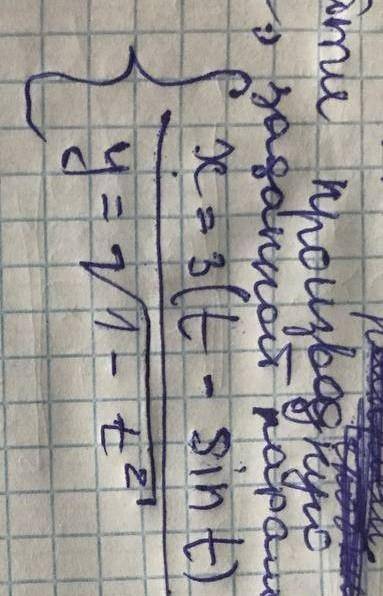 производную
заданной парам
x = 3(t - sin t)
y = √1 - t²